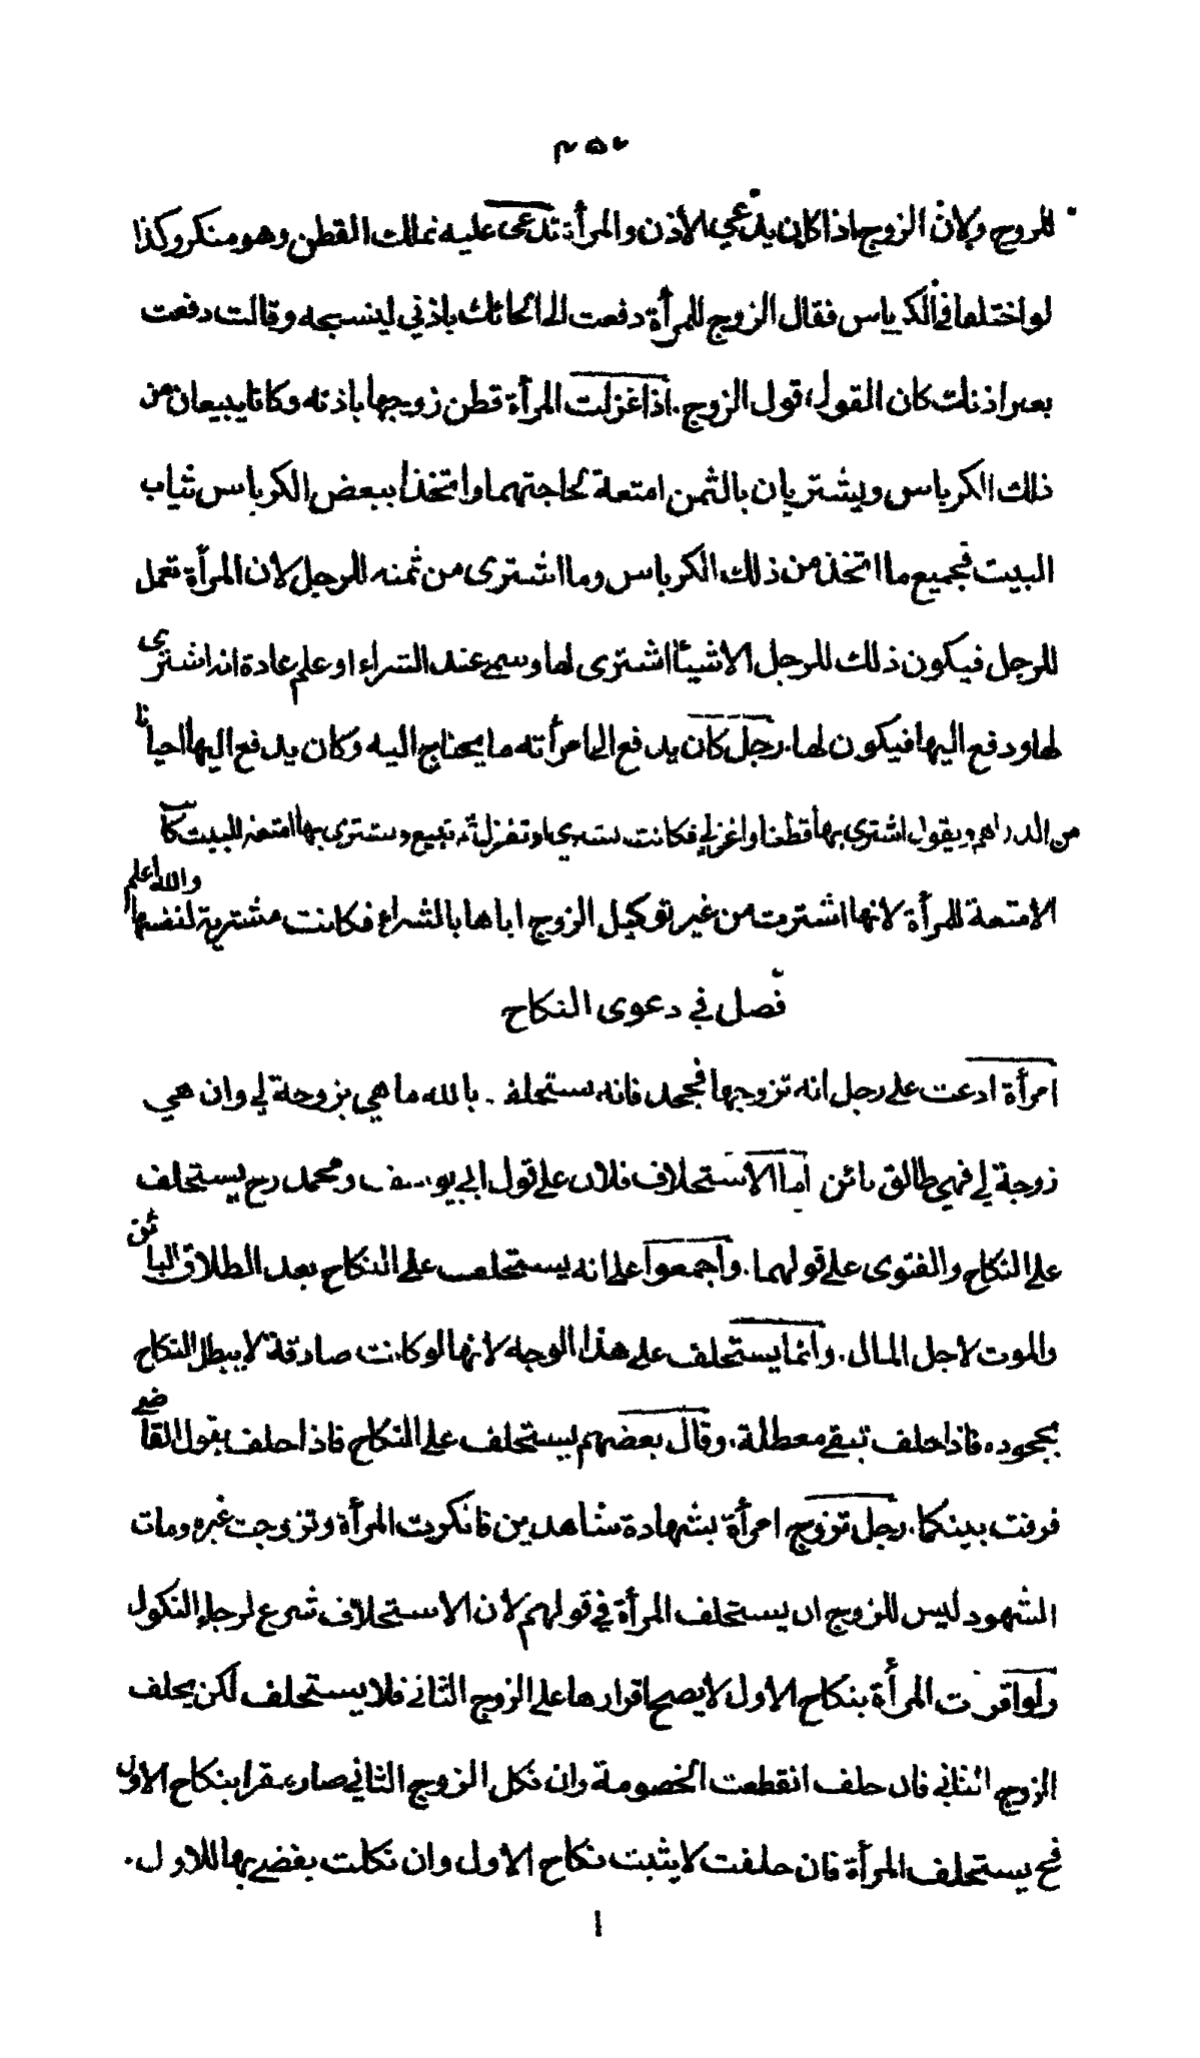 ٢٥٢
للزوج ولان الزوج اذا كان يدّعي الأذن والمرأة تدعى عليه تملك القطن وهو منكر وكذا
لو اختلفا في الكرباس فقال الزوج للمرأة دفعت الى الحائك باذني لينسجه وقالت دفعت
بغير اذنك كان القول قول الزوج. اذا غزلت المرأة قطن زوجها باذنه وكانا يبيعان من
ذلك الكرباس ويشتريان بالثمن امتعة لحاجتهما واتخذا ببعض الكرباس ثياب
البيت فجميع ما اتخذ من ذلك الكرباس وما اشترى من ثمنه للرجل لان المرأة تعمل
للرجل فيكون ذلك للرجل الا شيئا اشترى لها وسمى عند الشراء او علم عادة انه اشترى
لها ودفع اليها فيكون لها. رجل كان يدفع الى امرأته ما يحتاج اليه وكان يدفع اليها احيانا
من الدراهم ويقول اشترى بها قطنا واغزلي فكانت تشتري وتغزل ثم تبيع وتشترى بها امتعة للبيت كانت
الامتعة للمرأة لانها اشترت من غير توكيل الزوج اياها بالشراء فكانت مشترية لنفسها والله اعلم
فصل في دعوى النكاح
امرأة ادعت على رجل انه تزوجها فجحد فانه يستحلف بالله ما هي بزوجة لي وان هي
زوجة لي فهي طالق بائن اما الاستحلاف فلان على قول ابي يوسف ومحمد رح يستحلف
على النكاح والفتوى على قولهما. واجمعوا على انه يستحلف على النكاح بعد الطلاق البائن
والموت لاجل المال. وانما يستحلف على هذا الوجه لانها لو كانت صادقة لا يبطل النكاح
بجحوده فاذا حلف تبقى معطلة. وقال بعضهم يستحلف على النكاح فاذا حلف يقول القاضى
فرقت بينكما. رجل تزوج امرأة بشهادة شاهدين فانكرت المرأة وتزوجت غيره ومات
الشهود ليس للزوج ان يستحلف المرأة في قولهم لان الاستحلاف شرع لرجاء النكول
ولو اقرت المرأة بنكاح الاول لا يصح اقرارها على الزوج الثاني فلا يستحلف لكن يحلف
الزوج الثاني فان حلف انقطعت الخصومة وان نكل الزوج الثاني صار مقرا بنكاح الاول
فح يستحلف المرأة فان حلفت لا يثبت نكاح الاول وان نكلت يقضى بها للاول.
ا